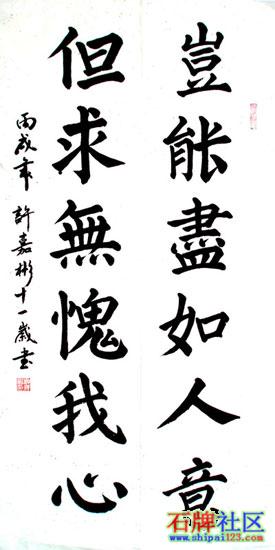 豈能盡如人意
但求無愧我心
丙戌年 許嘉彬十一歲書
石牌社区
www.shipai123.com